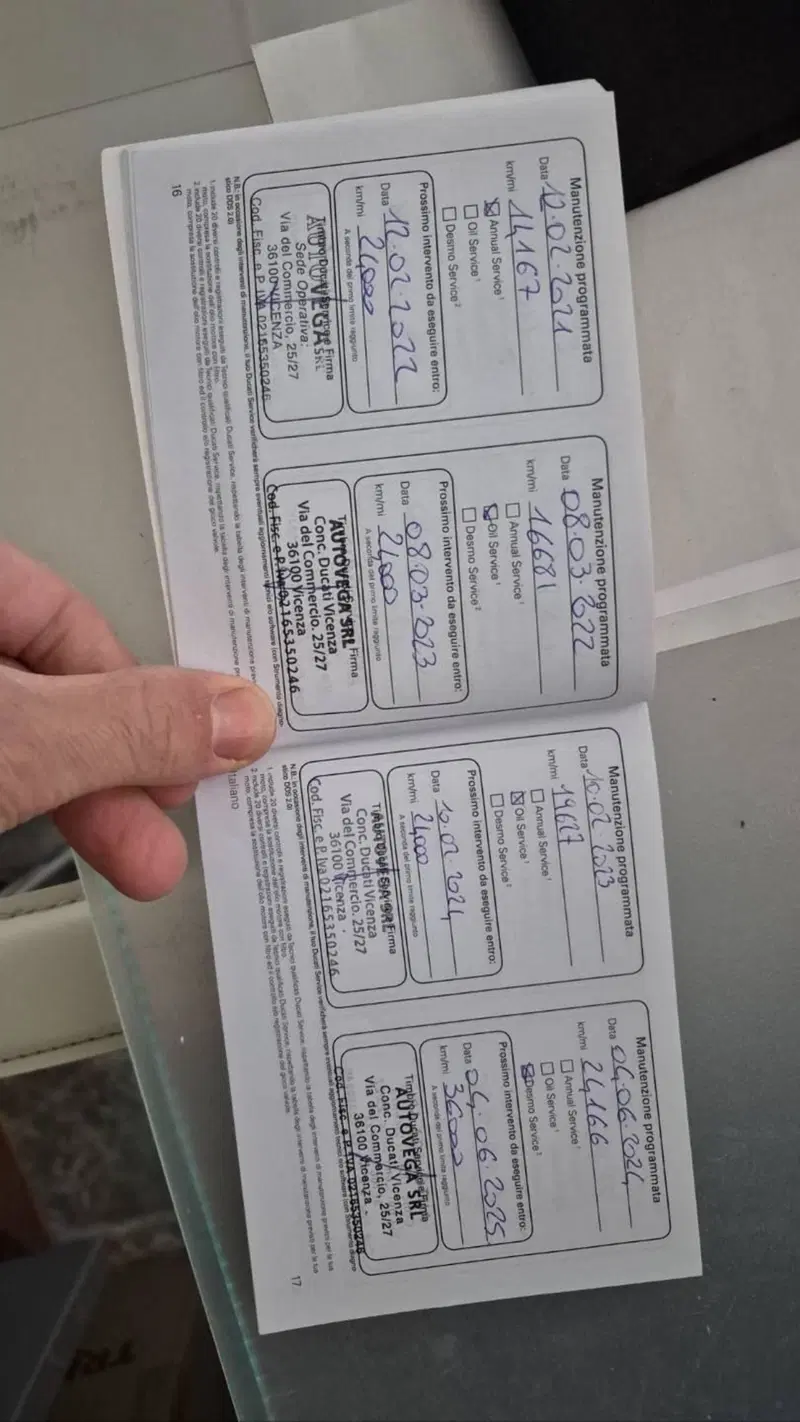 Manutenzione programmata
Data 12.02.2021
km/mi 14167
Annual Service¹
Oil Service¹
Desmo Service²
Prossimo intervento da eseguire entro:
Data 12.02.2022
km/mi 24000
A seconda del primo limite raggiunto
Firma
AUTOVEGA SRL
Sede Operativa:
Via del Commercio, 25/27
36100 VICENZA
Cod. Fisc. e P. IVA 02165350246
Manutenzione programmata
Data 08.03.2022
km/mi 16681
Annual Service¹
Oil Service¹
Desmo Service²
Prossimo intervento da eseguire entro:
Data 08.03.2023
km/mi 24000
A seconda del primo limite raggiunto
Firma
AUTOVEGA SRL
Conc. Ducati Vicenza
Via del Commercio. 25/27
36100 Vicenza
Cod. Fisc. e P. Iva 02165350246
N.B.: in occasione degli interventi di manutenzione, il tuo Ducati Service verificherà sempre eventuali aggiornamenti tecnici e/o software (con Strumento diagno-
stico DDS 2.0)
16
Manutenzione programmata
Data 10.02.2023
km/mi 19627
Annual Service¹
Oil Service¹
Desmo Service²
Prossimo intervento da eseguire entro:
Data 10.02.2024
km/mi 24000
A seconda del primo limite raggiunto
Firma
AUTOVEGA SRL
Conc. Ducati Vicenza
Via del Commercio, 25/27
36100 Vicenza
Cod. Fisc. e P. Iva 02165350246
Manutenzione programmata
Data 04.06.2024
km/mi 24166
Annual Service¹
Oil Service¹
Desmo Service²
Prossimo intervento da eseguire entro:
Data 04.06.2025
km/mi 36000
A seconda del primo limite raggiunto
Timbro Ducati Service e Firma
AUTOVEGA SRL
Conc. Ducati Vicenza
Via del Commercio, 25/27
36100 Vicenza
Cod. Fisc. e P. IVA 02165350246
N.B.: in occasione degli interventi di manutenzione, il tuo Ducati Service verificherà sempre eventuali aggiornamenti tecnici e/o software (con Strumento diagno-
stico DDS 2.0)
Italiano
17